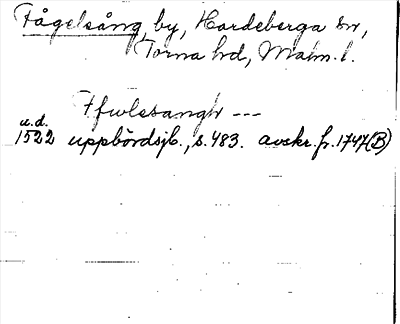 Fågelsång, by, Hardeberga sn,
Torna hd, Malm. l.
Ffwlesangh ---
u.d.
1522 uppbördsjb., s. 483. avskr. fr. 1747 (B)